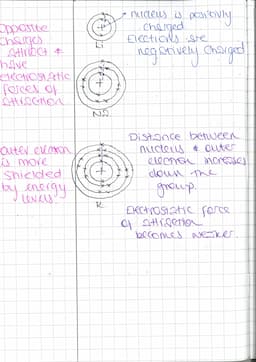 opposite
charges
attract &
have
electrostatic
forces of
attraction
nucleus is positivly
charged
Electrons are
negatively charged
Li
Na
outer electron
is more
shielded
by energy
levels
Distance between
nucleus & outer
electron increases
down the
group.
K
Electrostatic force
of attraction
becomes weaker.